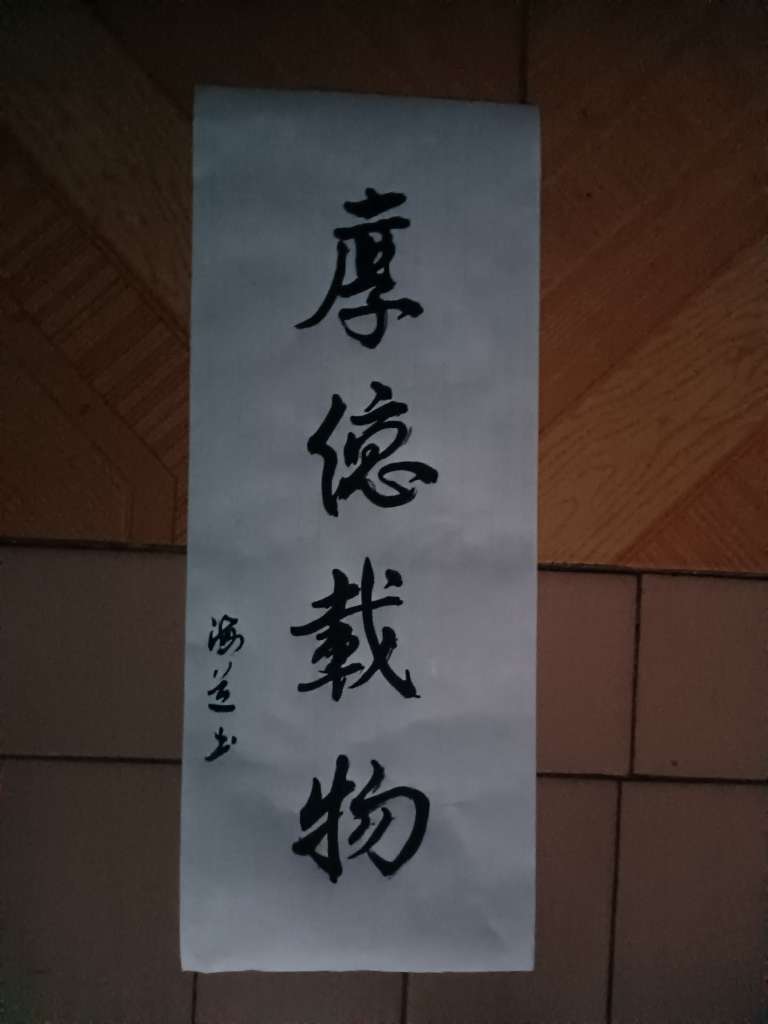 厚德載物
海益书